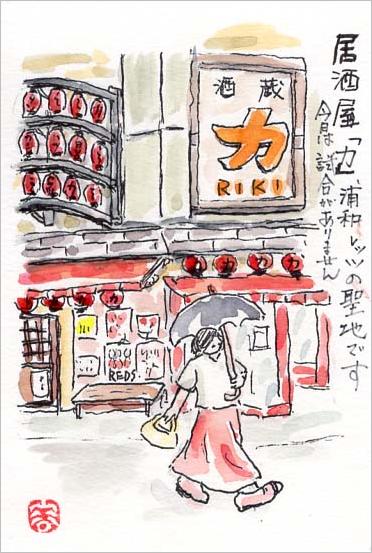 居酒屋「力」浦和レッズの聖地です
今月は試合がありません
酒蔵
力
RIKI
力 力 力 力
REDS